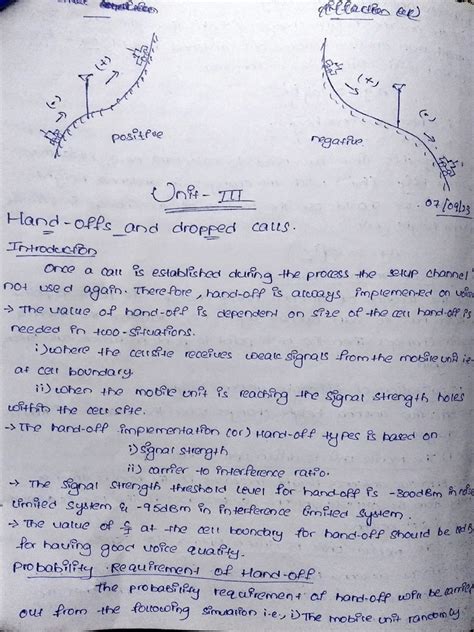 (+)
(-)
positive
(+)
(-)
negative
07/09/23
Unit - III
Hand-offs and dropped calls.
Introduction
Once a call is established during the process the setup channel
not used again. Therefore, hand-off is always implemented on
→ The value of hand-off is dependent on size of the cell hand-off is
needed in two-situations.
i) where the cellsite receives weak signals from the mobile unit i.e
at cell boundary
ii) when the mobile unit is reaching the signal strength holes
within the cell site.
→ The hand-off implementation (or) Hand-off types is based on
i) signal strength
ii) carrier to interference ratio.
→ The signal strength threshold level for hand-off is in
limited system & -95dBm in interference limited system.
→ The value of C/I at the cell boundary for hand-off should be
for having good voice quality.
Probability Requirement of Hand-off
The probability requirement of hand-off will be
out from the following situation i.e., i) The mobile unit randomly